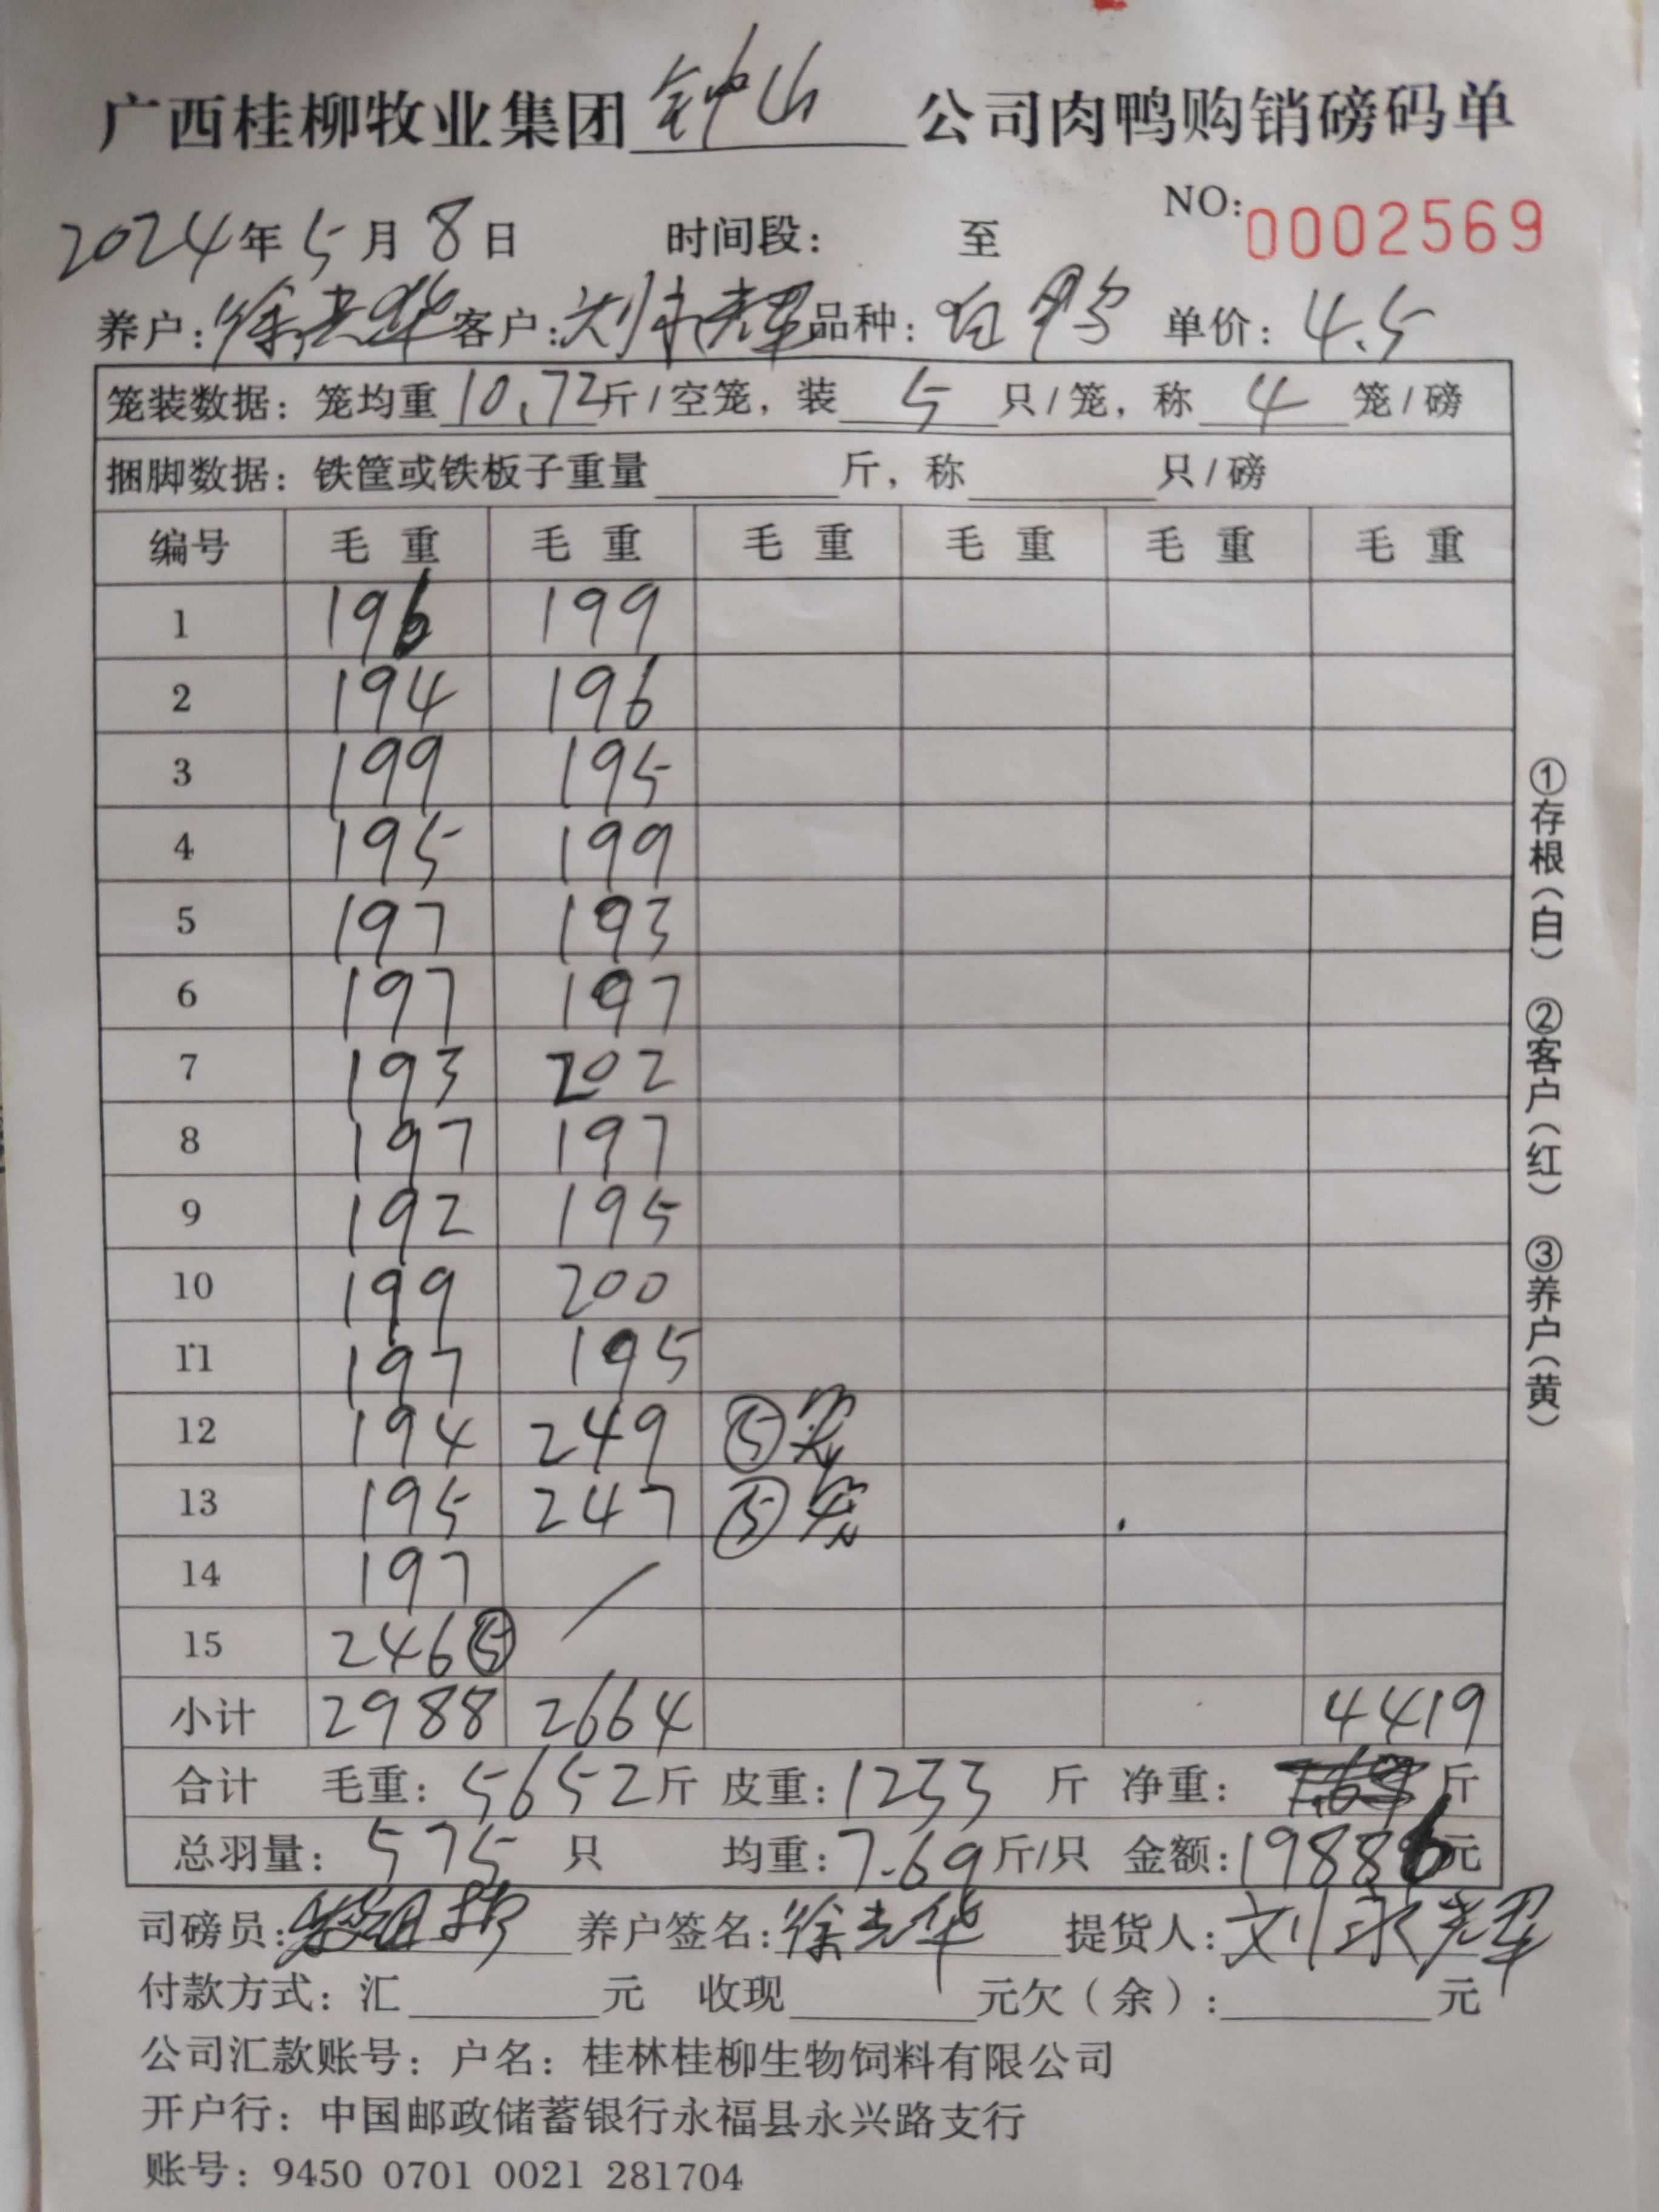 广西桂柳牧业集团钟山公司肉鸭购销磅码单
NO:0002569
2024年5月8日 时间段: 至
养户:徐光华 客户:刘永辉 品种:白鸭 单价:4.5
笼装数据:笼均重10.72斤/空笼,装5只/笼,称4笼/磅
捆脚数据:铁筐或铁板子重量 斤,称 只/磅
编号 毛重 毛重 毛重 毛重 毛重 毛重
1 196 199
2 194 196
3 199 195
4 195 199
5 197 193
6 197 197
7 193 202
8 197 197
9 192 195
10 199 200
11 197 195
12 194 249 ⑤笼
13 195 247 ⑤笼
14 197
15 246⑤
小计 2988 2664 4419
合计 毛重:5652斤 皮重:1233斤 净重: 斤
总羽量:575只 均重:7.69斤/只 金额:19886元
司磅员: 养户签名:徐光华 提货人:刘永辉
付款方式:汇 元 收现 元欠(余): 元
公司汇款账号:户名:桂林桂柳生物饲料有限公司
开户行:中国邮政储蓄银行永福县永兴路支行
账号:9450 0701 0021 281704
①存根(白) ②客户(红) ③养户(黄)